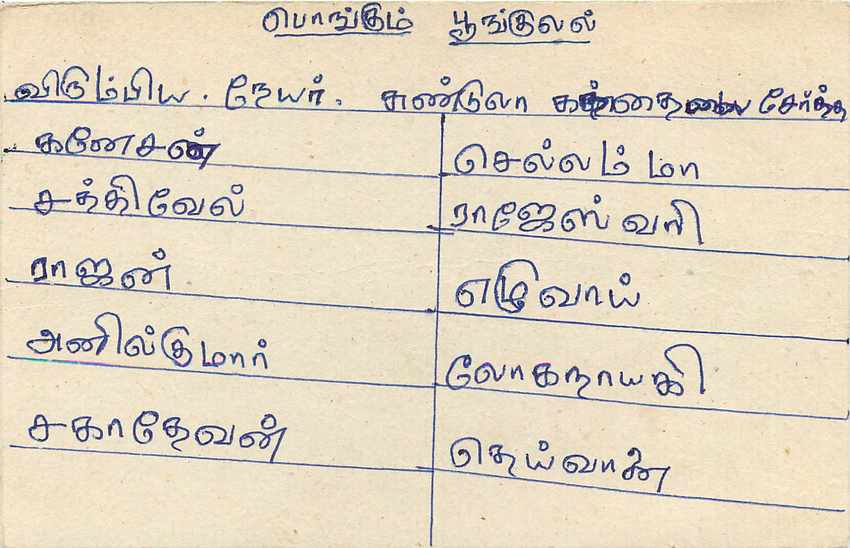 பொங்கும் பூங்குலல்
விரும்பிய . நேயர். சுண்டுலா சேர்ந்த
கனேசன்
செல்லம் மா
சக்திவேல்
ராஜேஸ்வரி
ராஜன்
எழுவாய்
அனில்குமார்
லோகநாயகி
சகாதேவன்
தெய்வானை